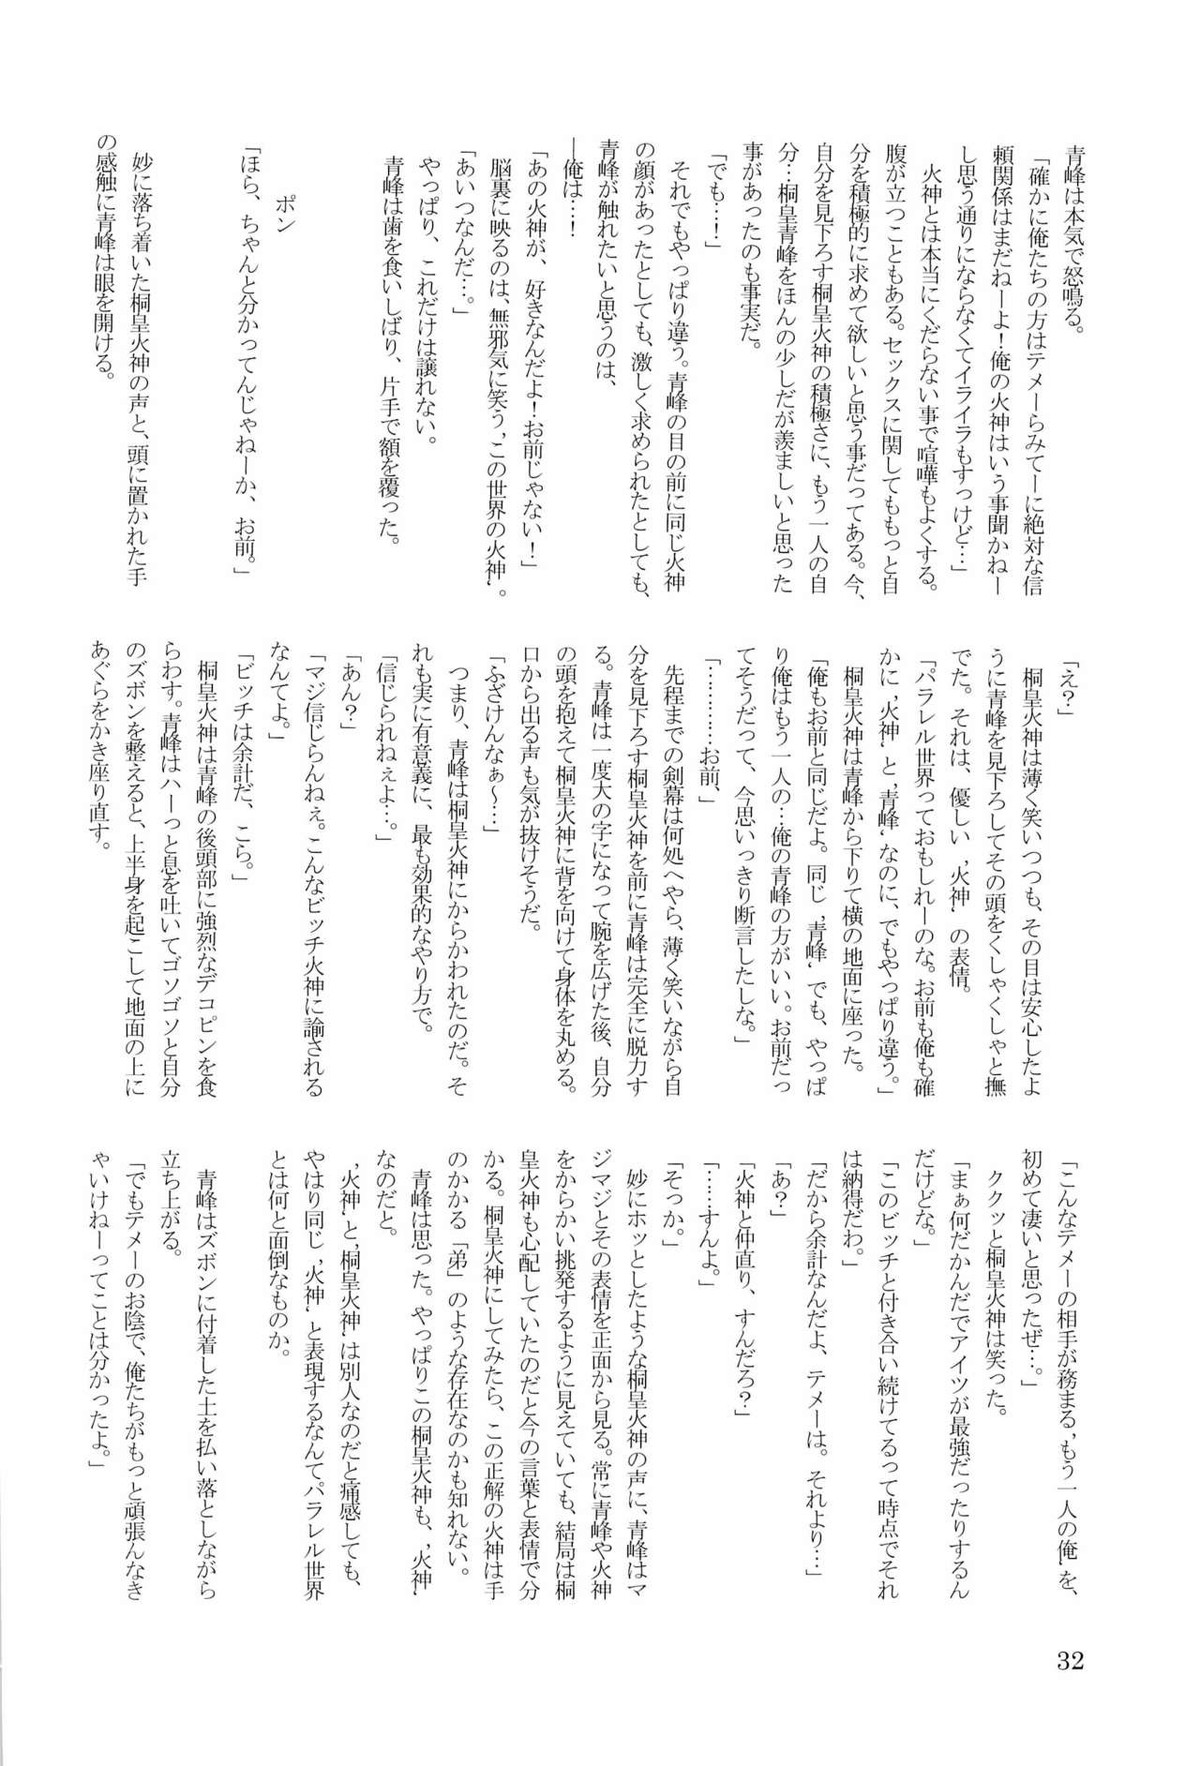 青峰は本気で怒鳴る。
「確かに俺たちの方はテメーらみてーに絶対な信
頼関係はまだねーよ！俺の火神はいう事聞かねー
し思う通りにならなくてイライラもすっけど…」
火神とは本当にくだらない事で喧嘩もよくする。
腹が立つこともある。セックスに関してももっと自
分を積極的に求めて欲しいと思う事だってある。今、
自分を見下ろす桐皇火神の積極さに、もう一人の自
分…桐皇青峰をほんの少しだが羨ましいと思った
事があったのも事実だ。
「でも…！」
それでもやっぱり違う。青峰の目の前に同じ火神
の顔があったとしても、激しく求められたとしても、
青峰が触れたいと思うのは、
―俺は…！
「あの火神が、好きなんだよ！お前じゃない！」
脳裏に映るのは、無邪気に笑う，この世界の火神‘。
「あいつなんだ…。」
やっぱり、これだけは譲れない。
青峰は歯を食いしばり、片手で額を覆った。
ポン
「ほら、ちゃんと分かってんじゃねーか、お前。」
妙に落ち着いた桐皇火神の声と、頭に置かれた手
の感触に青峰は眼を開ける。
「え？」
桐皇火神は薄く笑いつつも、その目は安心したよ
うに青峰を見下ろしてその頭をくしゃくしゃと撫
でた。それは、優しい，火神‘の表情。
「パラレル世界っておもしれーのな。お前も俺も確
かに，火神‘と，青峰‘なのに、でもやっぱり違う。」
桐皇火神は青峰から下りて横の地面に座った。
「俺もお前と同じだよ。同じ，青峰‘でも、やっぱ
り俺はもう一人の…俺の青峰の方がいい。お前だっ
てそうだって、今思いっきり断言したしな。」
「…………お前、」
先程までの剣幕は何処へやら、薄く笑いながら自
分を見下ろす桐皇火神を前に青峰は完全に脱力す
る。青峰は一度大の字になって腕を広げた後、自分
の頭を抱えて桐皇火神に背を向けて身体を丸める。
口から出る声も気が抜けそうだ。
「ふざけんなぁ～…」
つまり、青峰は桐皇火神にからかわれたのだ。そ
れも実に有意義に、最も効果的なやり方で。
「信じられねぇよ…。」
「あん？」
「マジ信じらんねぇ。こんなビッチ火神に諭される
なんてよ。」
「ビッチは余計だ、こら。」
桐皇火神は青峰の後頭部に強烈なデコピンを食
らわす。青峰はハーっと息を吐いてゴソゴソと自分
のズボンを整えると、上半身を起こして地面の上に
あぐらをかき座り直す。
「こんなテメーの相手が務まる，もう一人の俺‘を、
初めて凄いと思ったぜ…。」
ククッと桐皇火神は笑った。
「まぁ何だかんだでアイツが最強だったりするん
だけどな。」
「このビッチと付き合い続けてるって時点でそれ
は納得だわ。」
「だから余計なんだよ、テメーは。それより…」
「あ？」
「火神と仲直り、すんだろ？」
「……すんよ。」
「そっか。」
妙にホッとしたような桐皇火神の声に、青峰はマ
ジマジとその表情を正面から見る。常に青峰や火神
をからかい挑発するように見えていても、結局は桐
皇火神も心配していたのだと今の言葉と表情で分
かる。桐皇火神にしてみたら、この正解の火神は手
のかかる「弟」のような存在なのかも知れない。
青峰は思った。やっぱりこの桐皇火神も、，火神‘
なのだと。
，火神‘と，桐皇火神‘は別人なのだと痛感しても、
やはり同じ，火神‘と表現するなんてパラレル世界
とは何と面倒なものか。
青峰はズボンに付着した土を払い落としながら
立ち上がる。
「でもテメーのお陰で、俺たちがもっと頑張んなき
ゃいけねーってことは分かったよ。」
32